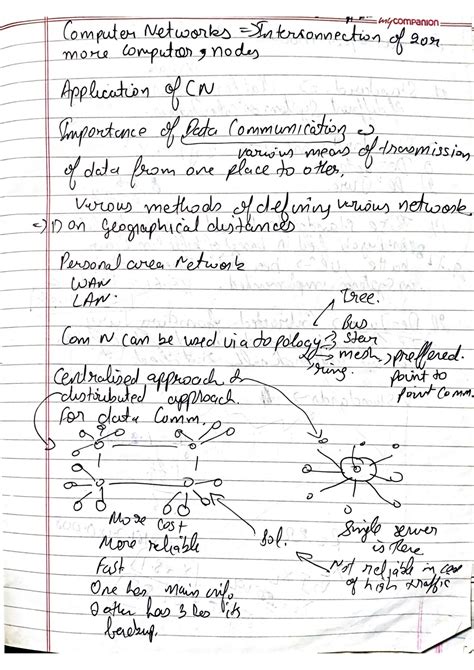 mycompanion
Computer Networks => Interconnection of 2 or
more computers, nodes
Application of CN
Importance of Data Communication
various means of transmission
of data from one place to other.
Various methods of defining various network
=> 1) on Geographical distances
Personal area Network
WAN
LAN.
Tree.
Bus
Com N can be used via topology star
mesh, preffered.
ring. point to
point comm.
Centralised approach &
distributed approach.
for data Comm.
More cost
More reliable
Fast
One has main info
other has 3 Des its
Sol.
Single server
is there
Not reliable in case
of high traffic